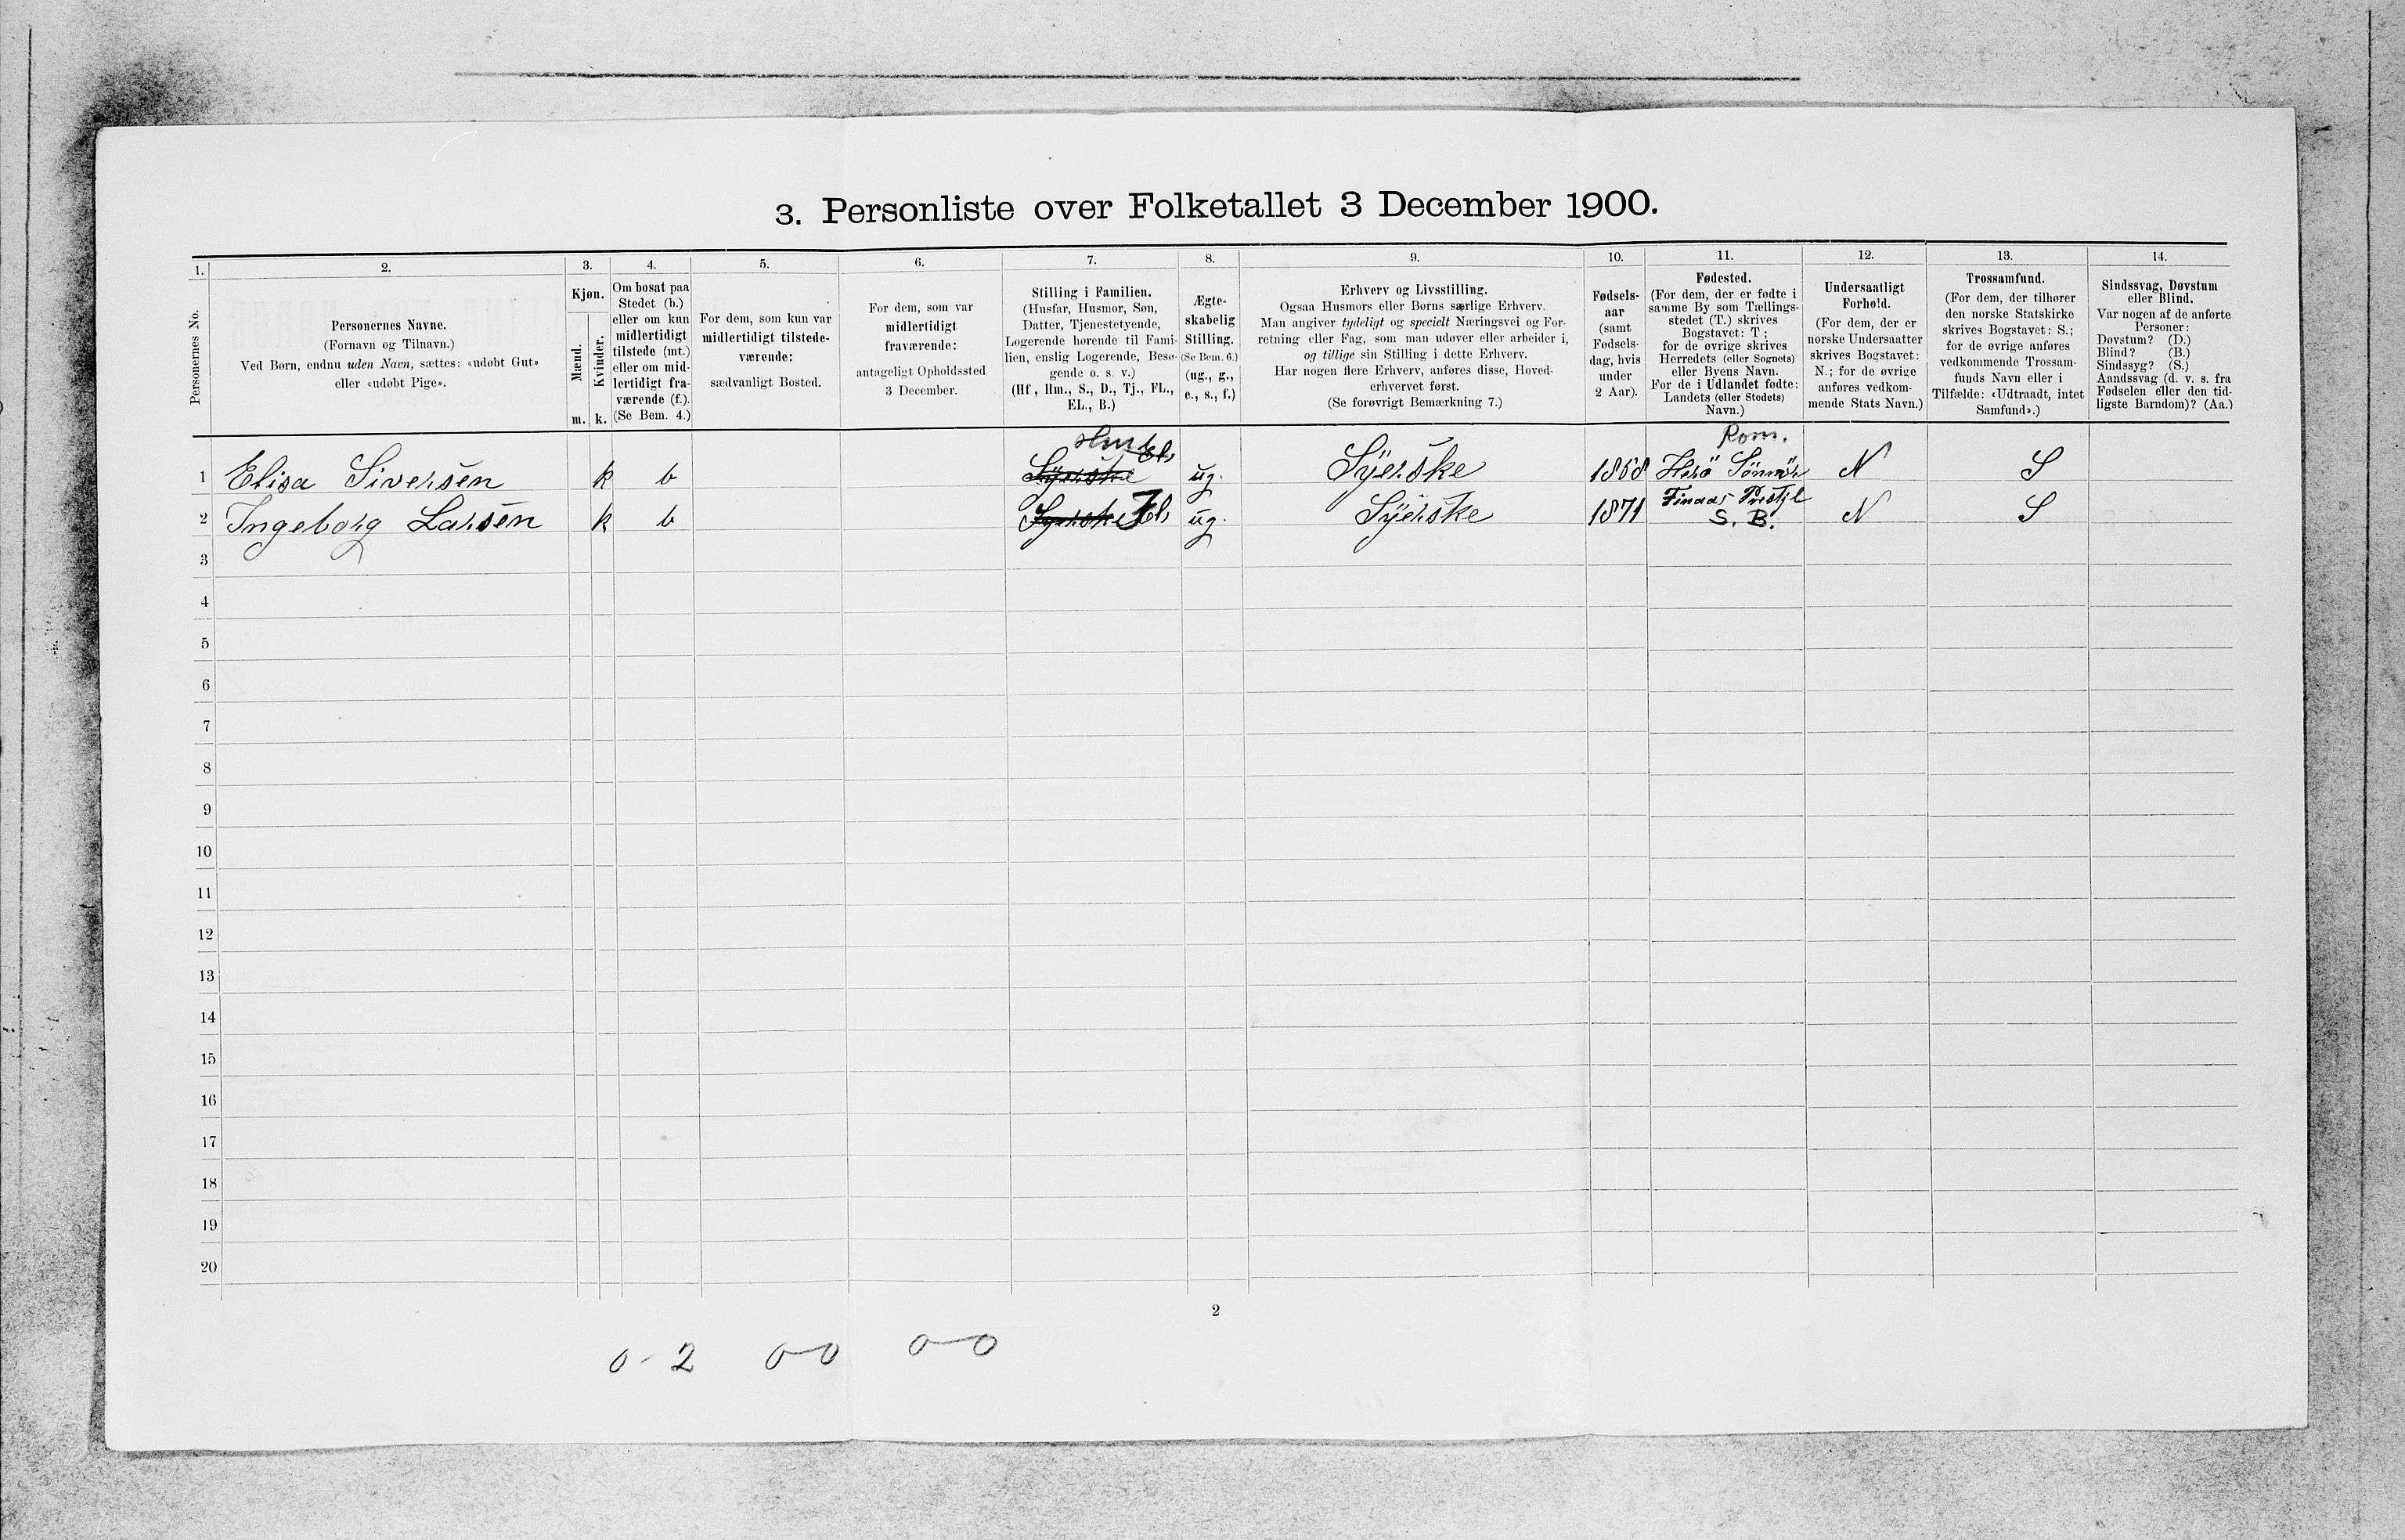 3. Personliste over Folketallet 3 December 1900.
1. 2. 3. 4. 5. 6. 7. 8. 9. 10. 11. 12. 13. 14.
Personernes No.
Personernes Navne.
(Fornavn og Tilnavn.)
Ved Børn, endnu uden Navn, sættes: «udøbt Gut»
eller «udøbt Pige».
Kjøn.
Mænd.
Kvinder.
m. k.
Om bosat paa
Stedet (b.)
eller om kun
midlertidigt
tilstede (mt.)
eller om mid-
lertidigt fra-
værende (f.).
(Se Bem. 4.)
For dem, som kun var
midlertidigt tilstede-
værende:
sædvanligt Bosted.
For dem, som var
midlertidigt
fraværende:
antageligt Opholdssted
3 December.
Stilling i Familien.
(Husfar, Husmor, Søn,
Datter, Tjenestetyende,
Logerende hørende til Fami-
lien, enslig Logerende, Besø-
gende o. s. v.)
(Hf., Hm., S., D., Tj., FL.,
EL., B.)
Ægte-
skabelig
Stilling.
(Se Bem. 6.)
(ug., g.,
e., s., f.)
Erhverv og Livsstilling.
Ogsaa Husmors eller Børns særlige Erhverv.
Man angiver tydeligt og specielt Næringsvei og For-
retning eller Fag, som man udøver eller arbeider i,
og tillige sin Stilling i dette Erhverv.
Har nogen flere Erhverv, anføres disse, Hoved-
erhvervet først.
(Se forøvrigt Bemærkning 7.)
Fødsels-
aar
(samt
Fødsels-
dag, hvis
under
2 Aar).
Fødested.
(For dem, der er fødte i
samme By som Tællings-
stedet (T.) skrives
Bogstavet: T;
for de øvrige skrives
Herredets (eller Sognets)
eller Byens Navn.
For de i Udlandet fødte:
Landets (eller Stedets)
Navn.)
Undersaatligt
Forhold.
(For dem, der er
norske Undersaatter
skrives Bogstavet:
N.; for de øvrige
anføres vedkom-
mende Stats Navn.)
Trossamfund.
(For dem, der tilhører
den norske Statskirke
skrives Bogstavet: S.;
for de øvrige anføres
vedkommende Trossam-
funds Navn eller i
Tilfælde: «Udtraadt, intet
Samfund».)
Sindssvag, Døvstum
eller Blind.
Var nogen af de anførte
Personer:
Døvstum? (D.)
Blind? (B.)
Sindssyg? (S.)
Aandssvag (d. v. s. fra
Fødselen eller den tid-
ligste Barndom)? (Aa.)
Rom.
1 Elisa Siversen k b Syerske El, ug. Syerske 1868 Herö Sönmör N S
Finaas Prestgl
2 Ingeborg Larsen k b Syerske El, ug. Syerske 1871 S. B. N S
3
4
5
6
7
8
9
10
11
12
13
14
15
16
17
18
19
20
2
0-2 0-0 0-0